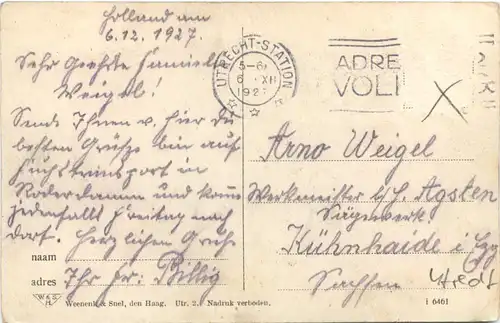 Holland am
6.12.1927.
Sehr Geehrte Familie
Weigel!
Sende Ihnen v. hier die
besten Grüße bin auf
in
Roderdamm und komme
jedenfalls Freitag nach
dort. Herzlichen Gruß
naam
adres Ihr Fr. Billig
UTRECHT-STATION
5-6
6 XII
192
ADRE
VOLI
X
Arno Weigel
Werkmeister b/H. Agsten
Sägewerk
Kühnhaide i/Erzg
Sachsen
W&S
H
Weenenk & Snel, den Haag. Utr. 2. Nadruk verboden.
i 6461